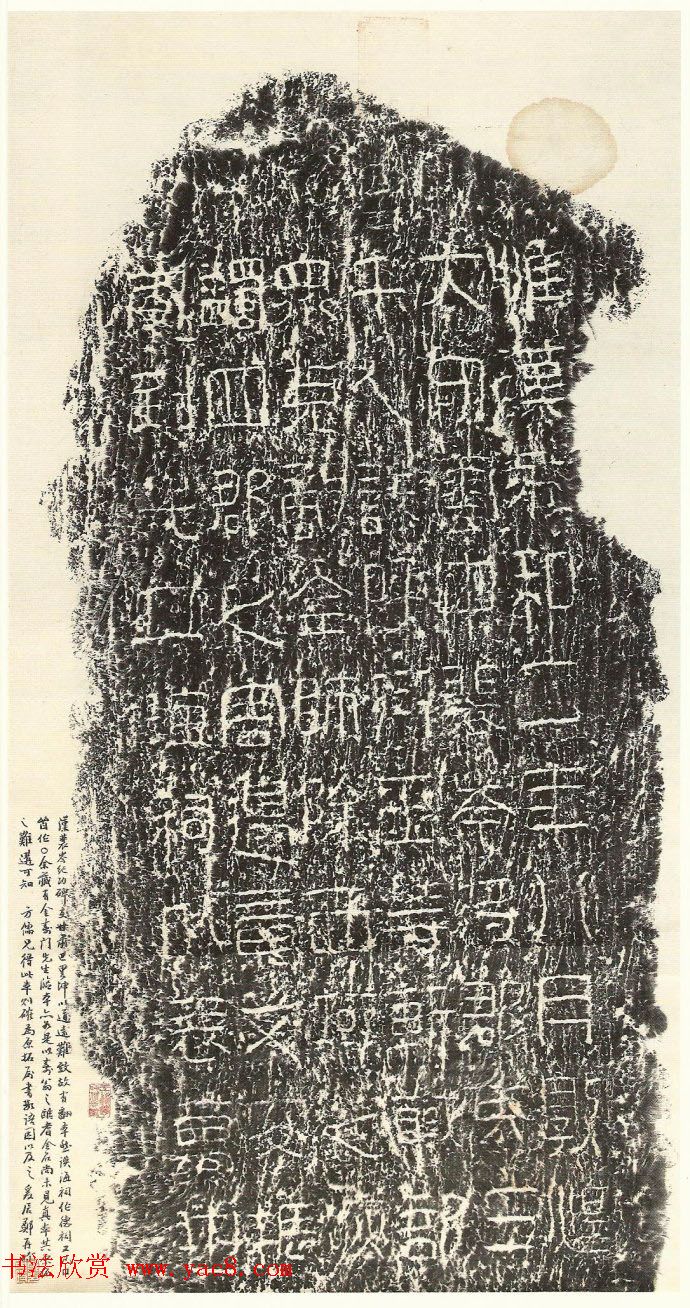 惟漢永和二年八月敦煌
大守雲中裴岑將郡兵三
千人誅呼衍王壽斬馘部
衆克敵全師除西域之疢
蠲四郡之害邊竟艾安振
威到此立海祠以表萬世
漢裴岑紀功碑在甘肅巴里坤以道遠難致故有翻本然誤海祠作德祠立
余藏有金壽門先生臨本亦如是以壽翁之者金石尚未見真本其
之難遘可知 方儒兄得此本確為原拓屬書數語因以及之 爰居鄭再
书法欣赏 www.yac8.com